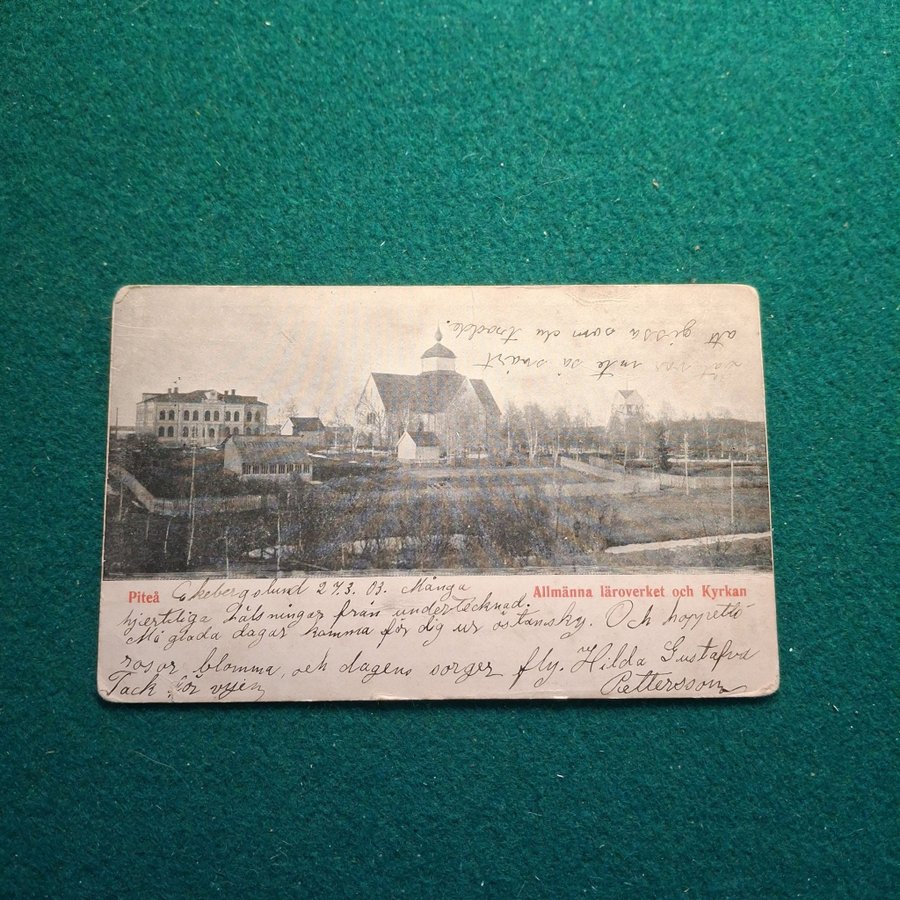 att gissa som du trodde.
det var inte så snart
Piteå
Allmänna läroverket och Kyrkan
Ekebergslund 27.3. 03. Många
hjertliga hälsningar från undertecknad.
Må glada dagar komma för dig ur östansky. Och hoppets
rosor blomma, och dagens sorger fly. Hilda Gustafva
Tack för vyen Pettersson